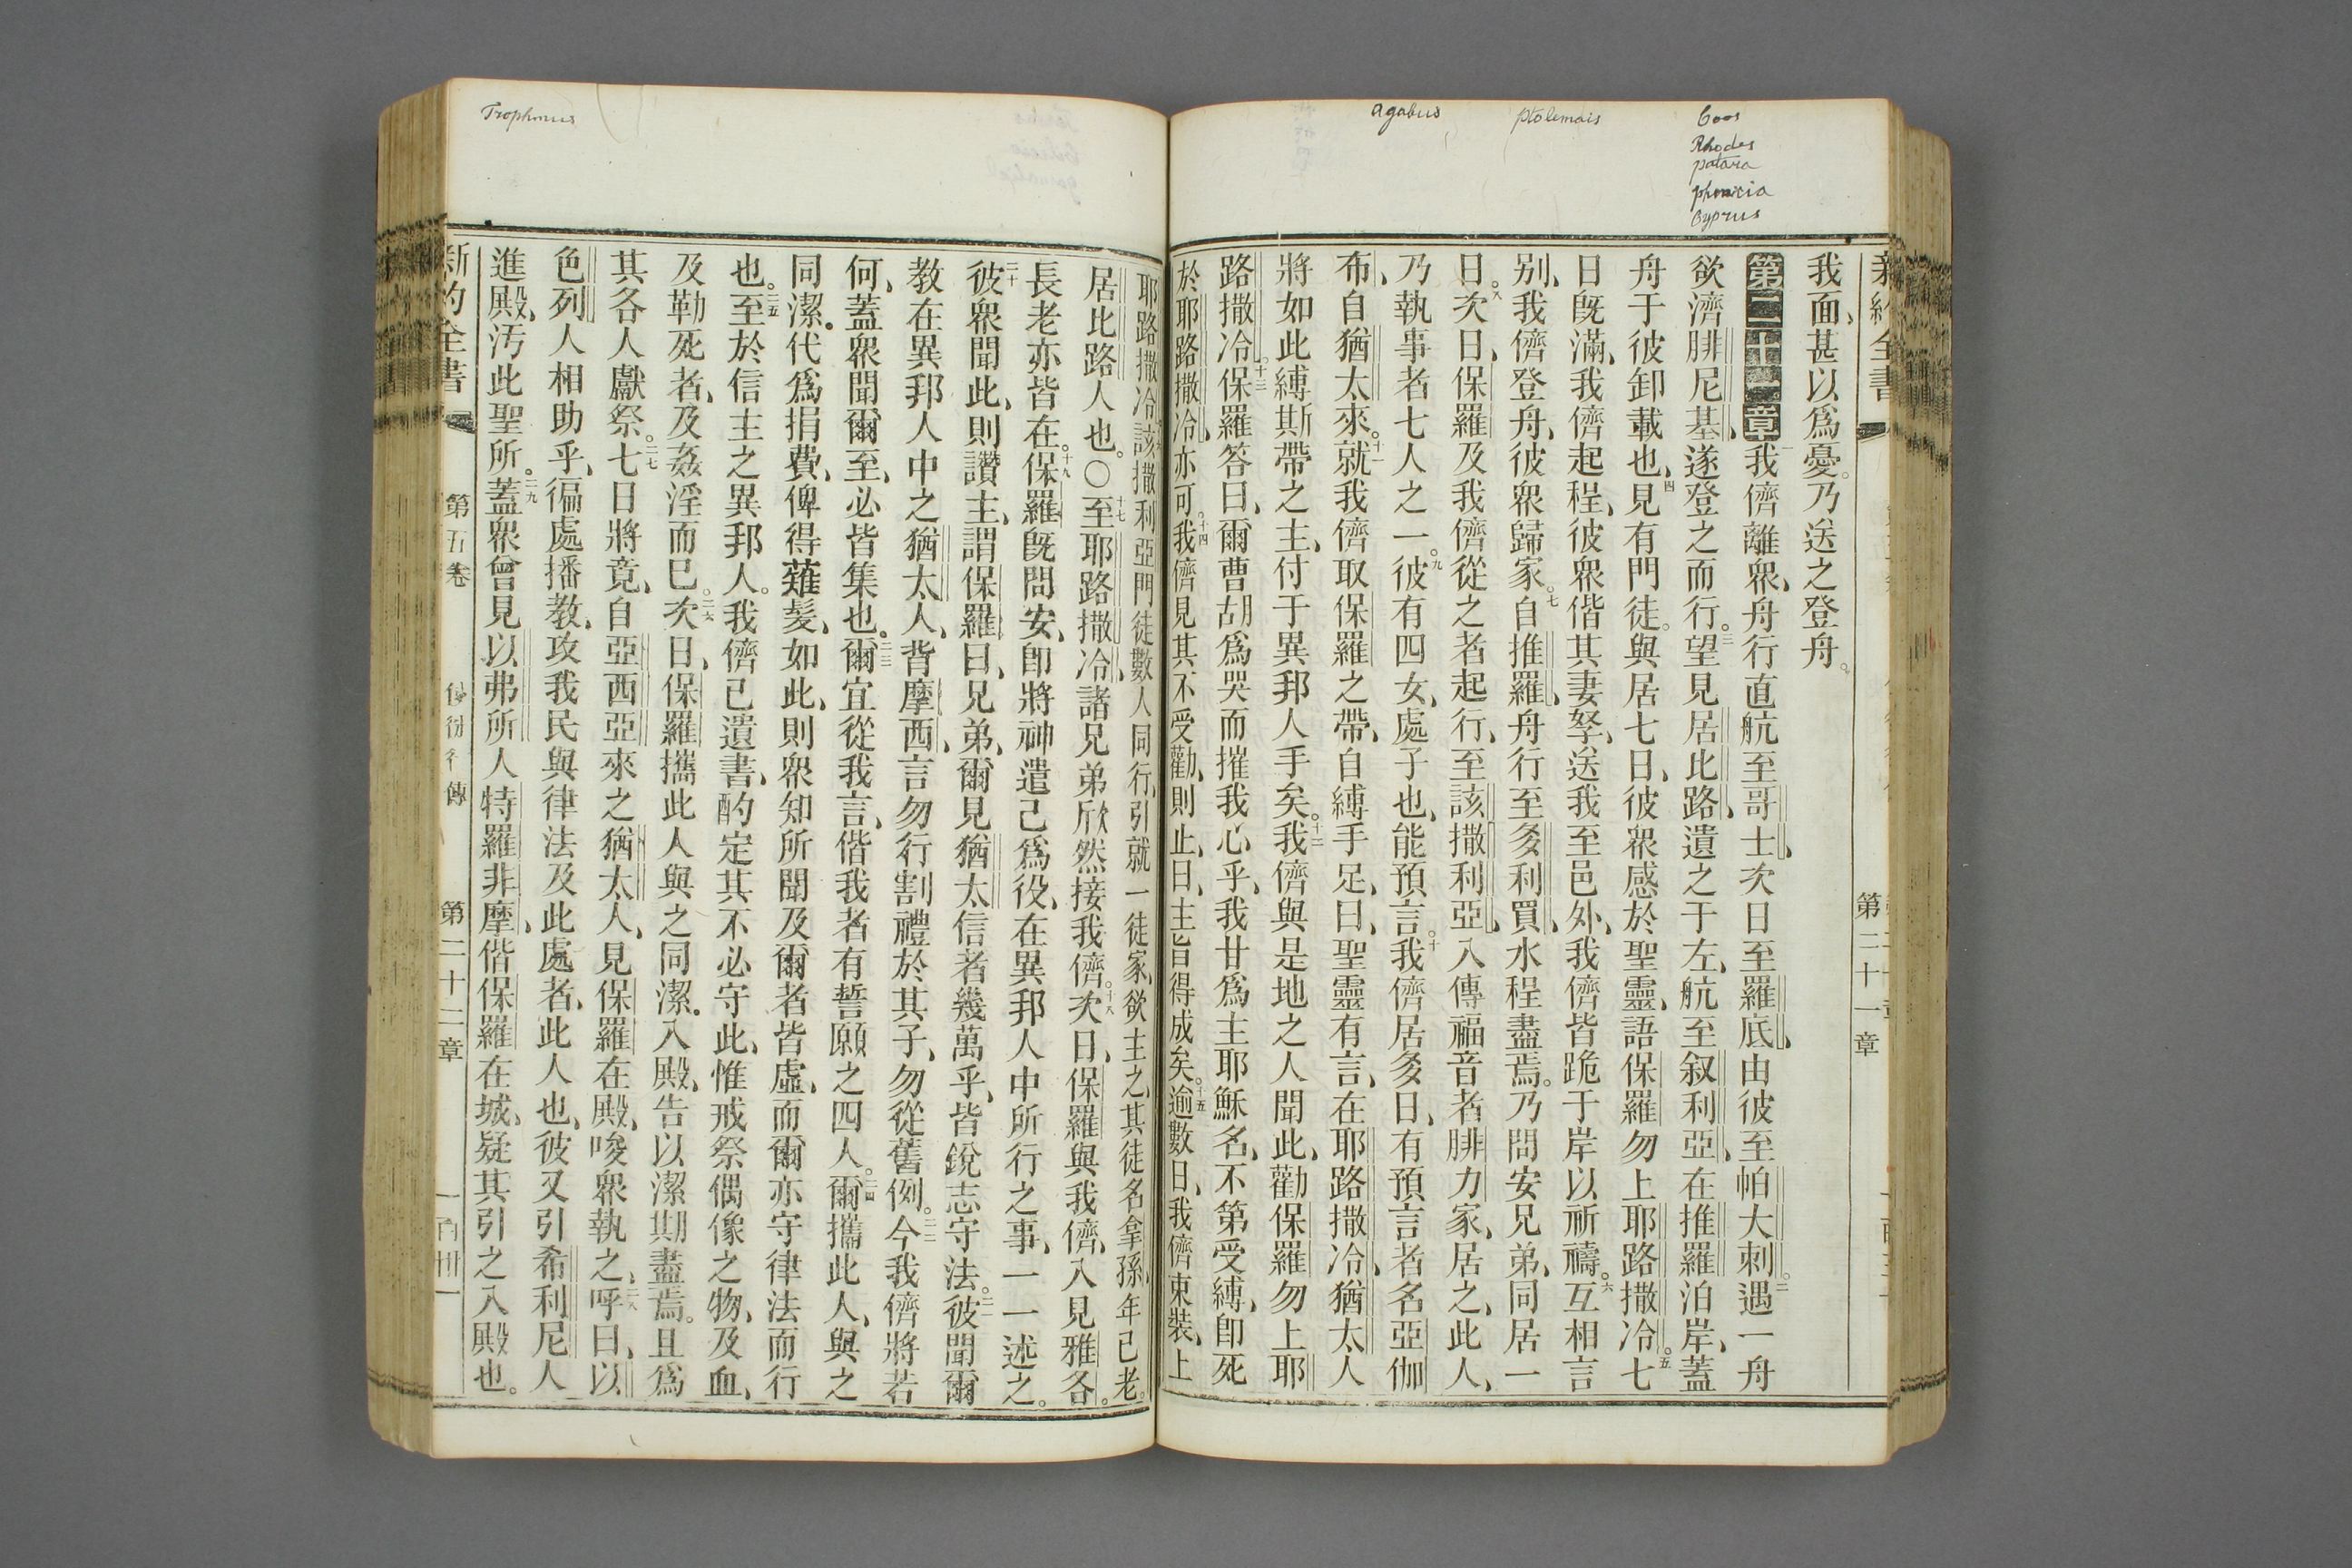 Coos
Rhodes
patara
phenicia
Cyprus
ptolemais
agabus
我面、甚以爲憂。乃送之登舟。
第二十一章一我儕離衆、舟行直航至哥士、次日至羅底、由彼至帕大刺。二遇一舟
欲濟腓尼基、遂登之而行。三望見居比路、遺之于左、航至叙利亞、在推羅泊岸、蓋
舟于彼卸載也、四見有門徒。與居七日、彼衆感於聖靈、語保羅勿上耶路撒冷。五七
日旣滿、我儕起程、彼衆偕其妻孥、送我至邑外、我儕皆跪于岸以祈禱。六互相言
别、我儕登舟、彼衆歸家。七自推羅、舟行至多利買、水程盡焉。乃問安兄弟、同居一
日。八次日、保羅及我儕從之者起行、至該撒利亞、入傳福音者腓力家、居之、此人、
乃執事者七人之一。九彼有四女、處子也、能預言。十我儕居多日、有預言者名亞伽
布、自猶太來。十一就我儕取保羅之帶、自縛手足、曰、聖靈有言、在耶路撒冷、猶太人
將如此縛斯帶之主、付于異邦人手矣。十二我儕與是地之人聞此、勸保羅勿上耶
路撒冷。十三保羅答曰、爾曹胡爲哭而摧我心乎、我甘爲主耶穌名、不第受縛、卽死
於耶路撒冷、亦可。十四我儕見其不受勸、則止、曰、主旨得成矣。十五逾數日、我儕束裝、上
第二十一章
Trophimus
耶路撒冷、該撒利亞門徒數人同行、引就一徒家、欲主之、其徒名拿孫、年已老。
居比路人也。〇十七至耶路撒冷、諸兄弟欣然接我儕。十八次日、保羅與我儕、入見雅各。
長老亦皆在。十九保羅旣問安、卽將神遣己爲役、在異邦人中所行之事、一一述之。
二十彼衆聞此、則讚主、謂保羅曰、兄弟、爾見猶太信者幾萬乎、皆銳志守法。二一彼聞爾
教在異邦人中之猶太人、背摩西、言勿行割禮於其子、勿從舊例。二二今我儕將若
何、蓋衆聞爾至、必皆集也。二三爾宜從我言、偕我者有誓願之四人。二四爾攜此人、與之
同潔。代爲捐費、俾得薙髮、如此、則衆知所聞及爾者皆虛、而爾亦守律法而行
也。二五至於信主之異邦人。我儕已遺書、酌定其不必守此、惟戒祭偶像之物、及血、
及勒死者、及姦淫而已。二六次日、保羅攜此人與之同潔。入殿、告以潔期盡焉。且爲
其各人獻祭。二七七日將竟、自亞西亞來之猶太人、見保羅在殿、唆衆執之、二八呼曰、以
色列人相助乎、徧處播教、攻我民與律法及此處者、此人也、彼又引希利尼人
進殿、汚此聖所。二九蓋衆曾見以弗所人特羅非摩、偕保羅在城、疑其引之入殿也。
新約全書 第五卷 傳 第二十二章